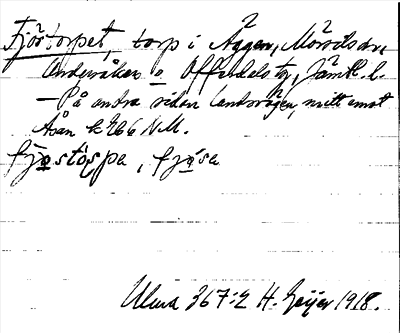 Fjöstorpet, torp i Äggen, Mörsils sn,
Undersåker o. Offerdals tg, Jämtl. l.
— På andra sidan landsvägen, mitt emot
Åsan k 266 N.M.
fjostöspa, fjosa
Ulma 367:2 H. Geijer 1918.